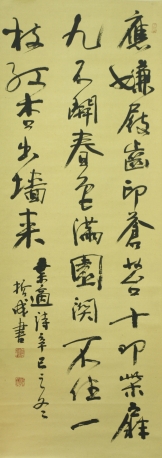 應嫌屐齒印蒼苔十叩柴扉
九不開春色滿園関不住一
枝紅杏出墻来
葉適詩辛巳之冬
書